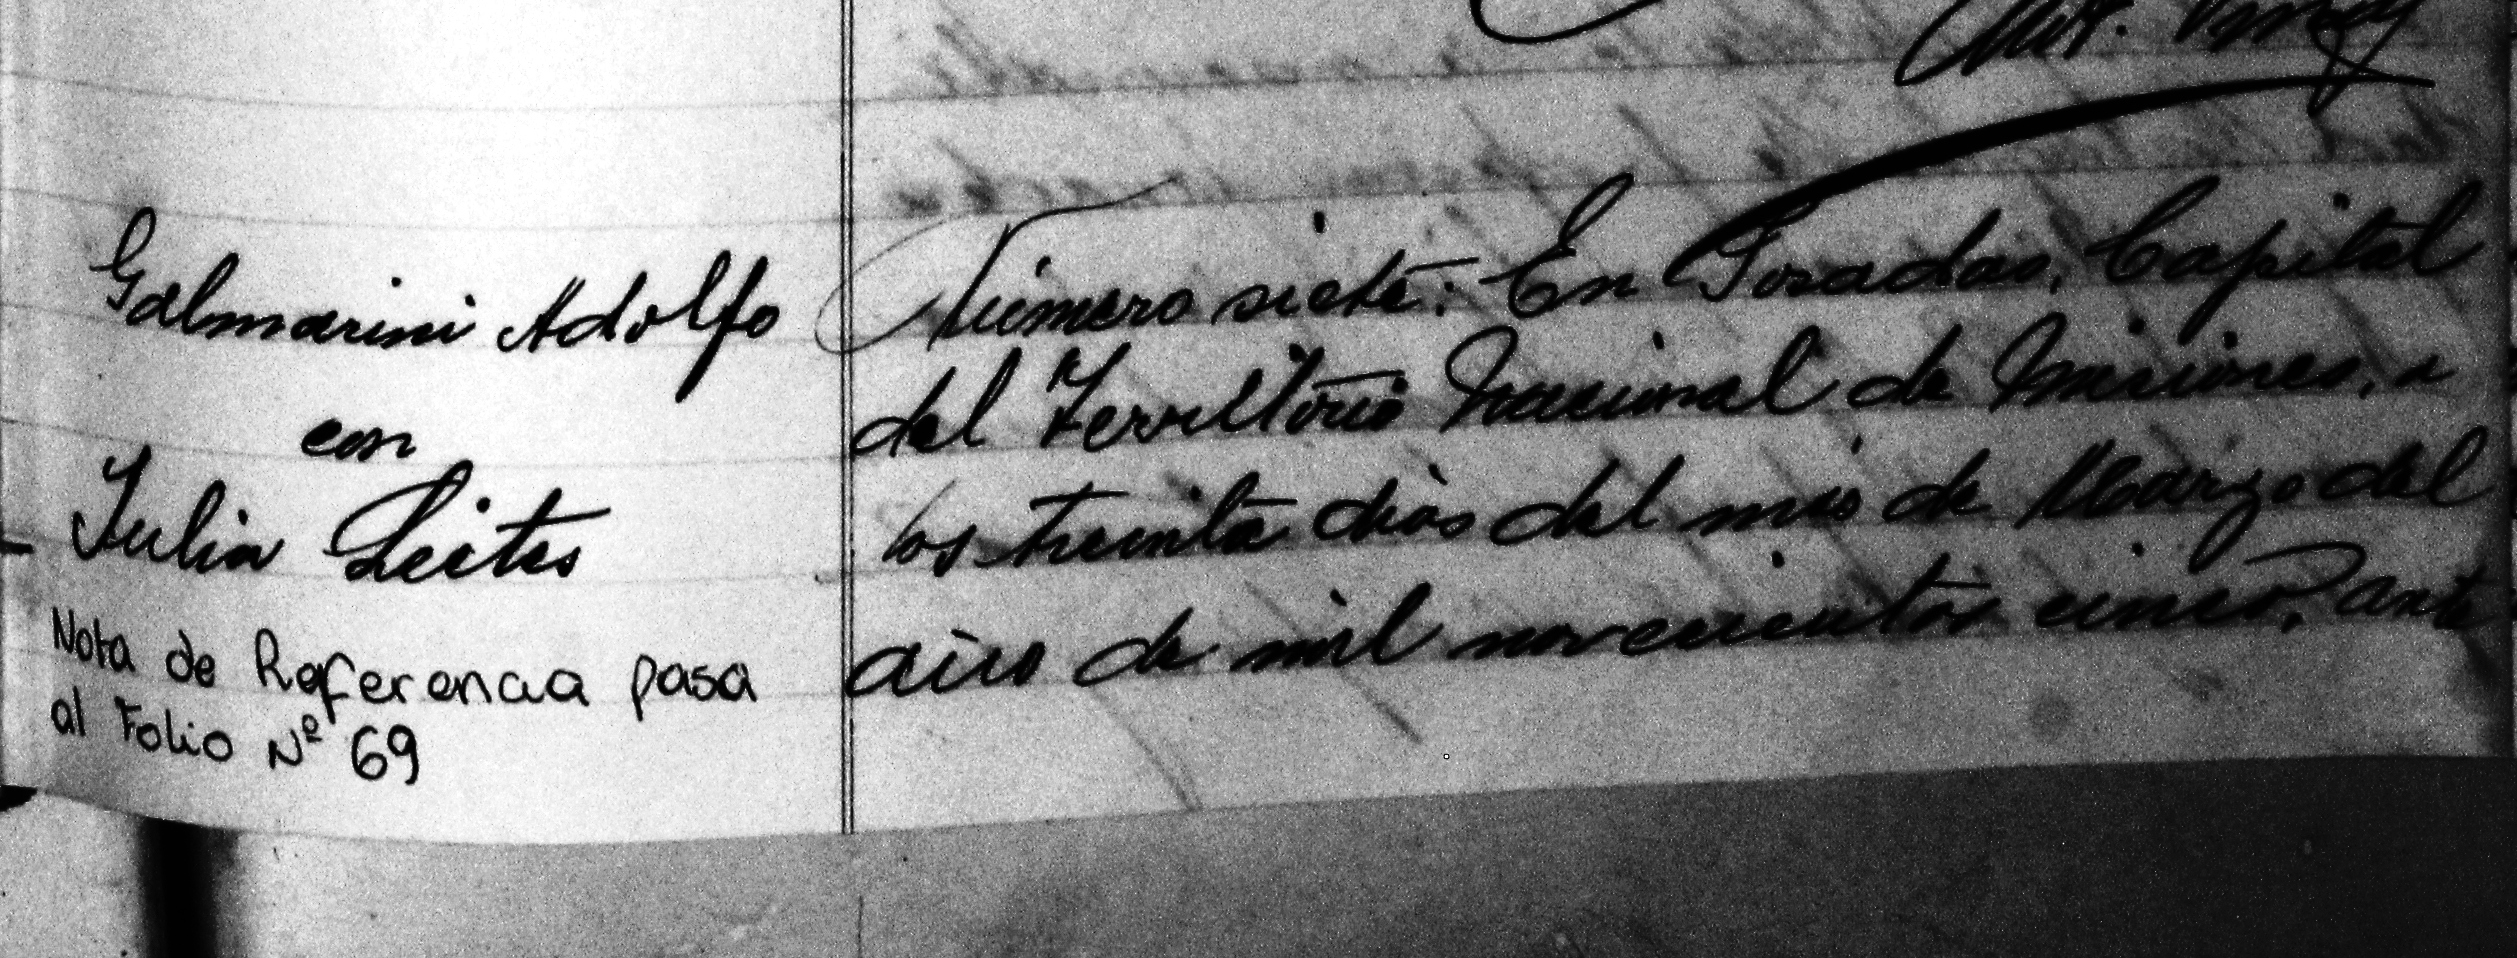 Galmarini Adolfo
con
Julia Leites
Nota de Referencia pasa
al Folio Nº 69
Número siete: En Posadas, Capital
del Territorio Nacional de Misiones, a
los treinta dias del mes de Marzo del
año de mil novecientos cinco, ante